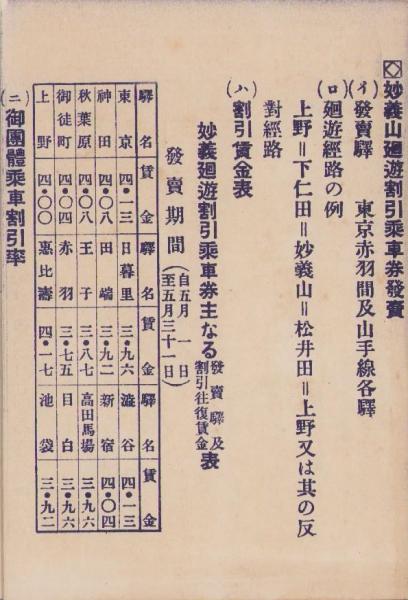 妙義山廻遊割引乘車券發賣
(イ)發賣驛 東京赤羽間及山手線各驛
(ロ)廻遊經路の例
上野=下仁田=妙義山=松井田=上野又は其の反
對經路
(ハ)割引賃金表
妙義廻遊割引乘車券主なる發賣驛及割引往復賃金表
發賣期間(自五月一日至五月三十一日)
驛名 賃金 驛名 賃金 驛名 賃金
東京 四・一三 日暮里 三・九六 澁谷 四・一三
神田 四・〇八 田端 三・九二 新宿 四・〇四
秋葉原 四・〇八 王子 三・八七 高田馬場 三・九六
御徒町 四・〇四 赤羽 三・七五 目白 三・九六
上野 四・〇〇 惠比壽 四・一七 池袋 三・九二
(ニ)御團體乘車割引率